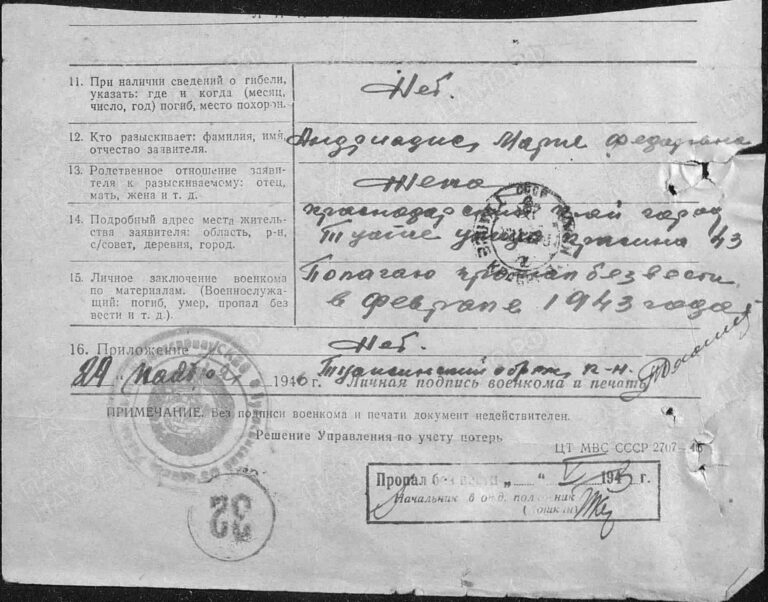 11. При наличии сведений о гибели,
указать: где и когда (месяц,
число, год) погиб, место похорон.
Нет.
12. Кто разыскивает: фамилия, имя,
отчество заявителя.
Андриадис Мария Федоровна
13. Родственное отношение заяви-
теля к разыскиваемому: отец,
мать, жена и т. д.
Жена
14. Подробный адрес места житель-
ства заявителя: область, р-н,
с/совет, деревня, город.
Краснодарский край город
Туапсе улица 43
15. Личное заключение военкома
по материалам. (Военнослужа-
щий: погиб, умер, пропал без
вести и т. д.).
Полагаю пропал без вести
в феврале 1943 года
16. Приложение Нет.
29 " 1946 г. Туапсинский
Личная подпись военкома и печать
ПРИМЕЧАНИЕ. Без подписи военкома и печати документ недействителен.
Решение Управления по учету потерь
ЦТ МВС СССР 2707—46
Пропал без вести „ “ V 1943 г.
Начальник отд. полковник
32